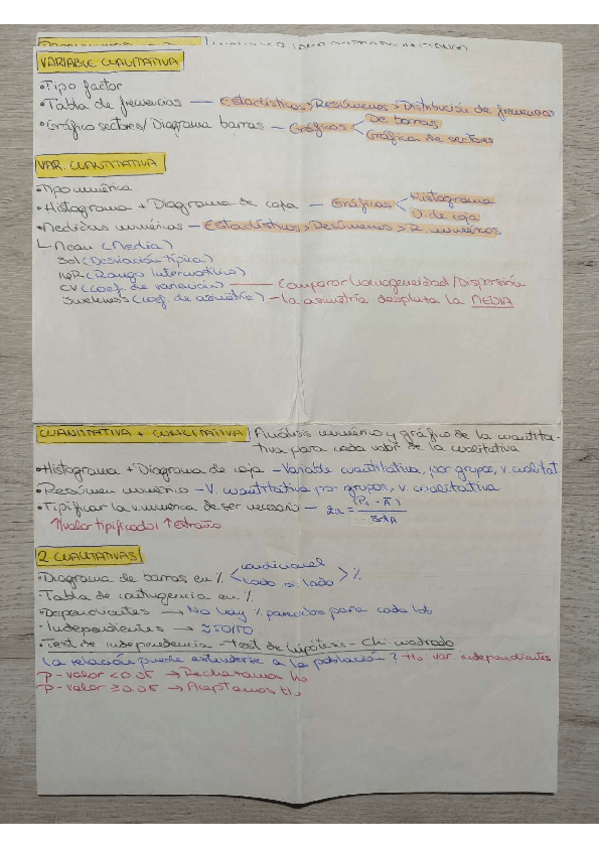 VARIABLE CUALITATIVA
•Tipo factor
•Tabla de frecuencias — Estadísticos>Resúmenes>Distribución de frecuencias
•Gráfico sectores/Diagrama barras — Gráficos < De barras
Gráfica de sectores
VAR. CUANTITATIVA
•Tipo numérica
•Histograma + Diagrama de caja — Gráficas < Histograma
D. de caja
•Medidas numéricas — Estadísticos>Resúmenes>R. numéricos
Mean (Media)
Sd (Desviación típica)
IQR (Rango Intercuartílico)
CV (coef. de variación) — Comparar homogeneidad/Dispersión
Skewness (coef. de asimetría) — la asimetría desplaza la MEDIA
CUANTITATIVA + CUALITATIVA Análisis numérico y gráfico de la cuantita-
tiva para cada valor de la cualitativa
•Histograma + Diagrama de caja — Variable cuantitativa, por grupos, v. cualitat
•Resumen numérico — V. cuantitativa por grupos, v. cualitativa
•Tipificar la v. numérica de ser necesario — Za = (P1 - Ā) / SdA
↑valor tipificado, ↑extraño
2 CUALITATIVAS
•Diagrama de barras en % < condicional
lado a lado > %
•Tabla de contingencia en %
•Dependientes → No hay % parecidos para cada lado
•Independientes → ≈50/50
•Test de independencia - test de hipótesis - Chi cuadrado
La relación puede extenderse a la población? H₀: var. independientes
p-valor <0.05 → Rechazamos H₀
p-valor ≥0.05 → Aceptamos H₀